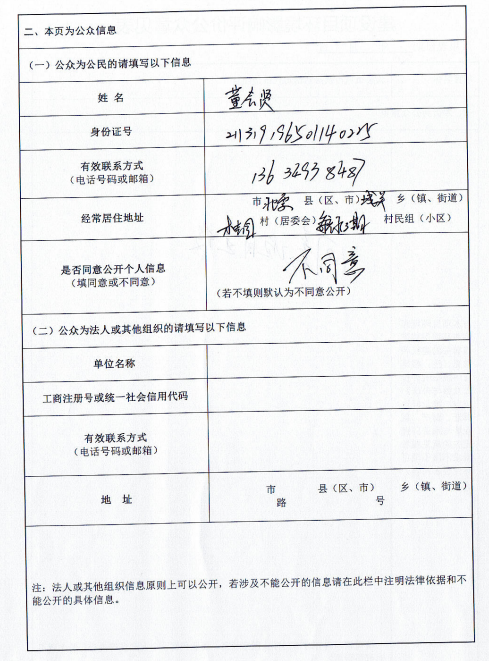 二、本页为公众信息
（一）公众为公民的请填写以下信息
姓 名
董会贤
身份证号
有效联系方式
（电话号码或邮箱）
136 3493 8487
经常居住地址
市北票县（区、市）城关乡（镇、街道）
村（居委会） 村民组（小区）
是否同意公开个人信息
（填同意或不同意）
不同意
（若不填则默认为不同意公开）
（二）公众为法人或其他组织的请填写以下信息
单位名称
工商注册号或统一社会信用代码
有效联系方式
（电话号码或邮箱）
地 址
市 县（区、市） 乡（镇、街道）
路 号
注：法人或其他组织信息原则上可以公开，若涉及不能公开的信息请在此栏中注明法律依据和不
能公开的具体信息。